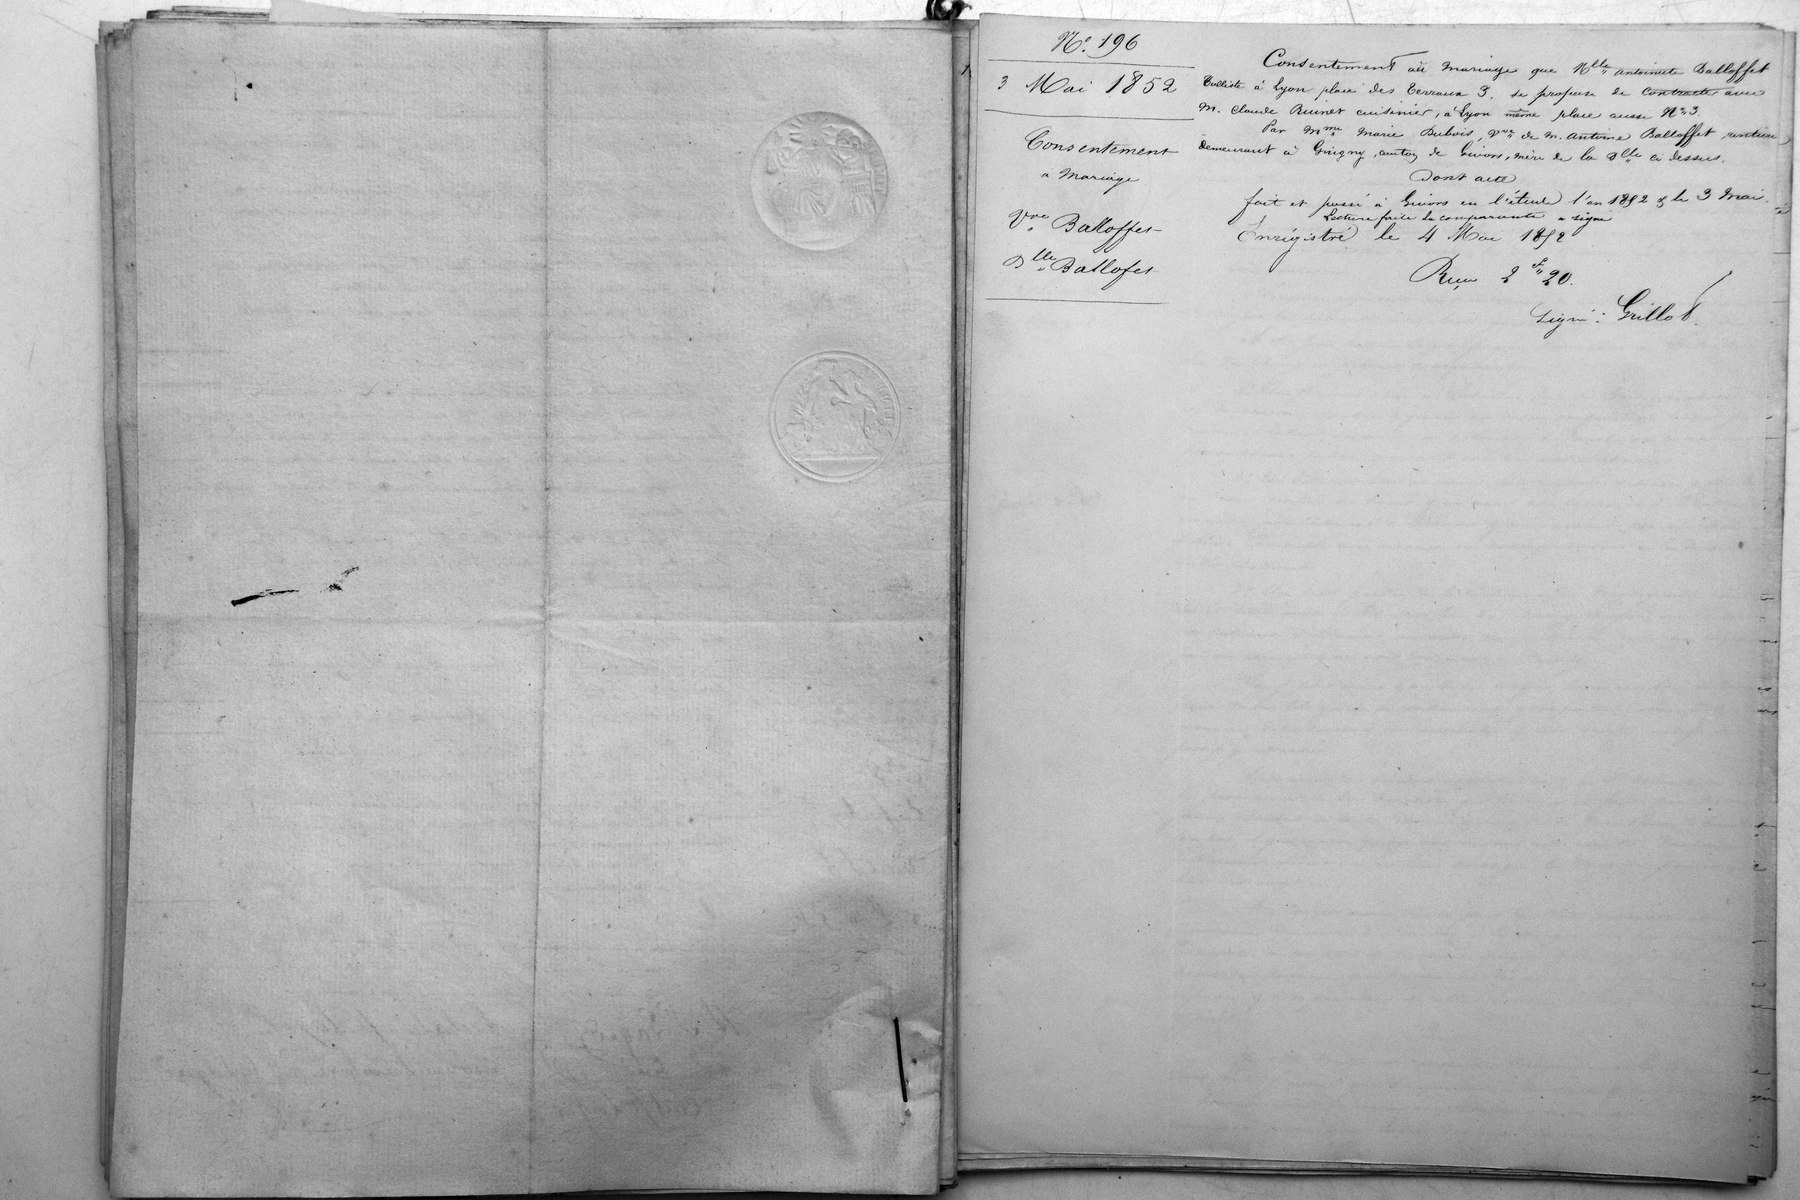 N° 196
3 Mai 1852
Consentement
à Mariage
Vve Balloffet
Dlle Ballofet
Consentement au mariage que Mlle antoinette Balloffet
à Lyon place des Terraux 3. se propose de contracter avec
M. Claude Ruinet cuisinier, à Lyon même place aussi N° 3
Par Mme Marie Dubois, Vve de M. Antoine Balloffet, rentière
demeurant à Grigny, canton de Givors, mère de la Dlle ci dessus.
Dont acte
fait et passé à Givors en l'étude l'an 1852 & le 3 Mai.
Lecture faite la comparante a signé
Enrégistré le 4 Mai 1852
Reçu 2 f 20.
Signé : Grillot